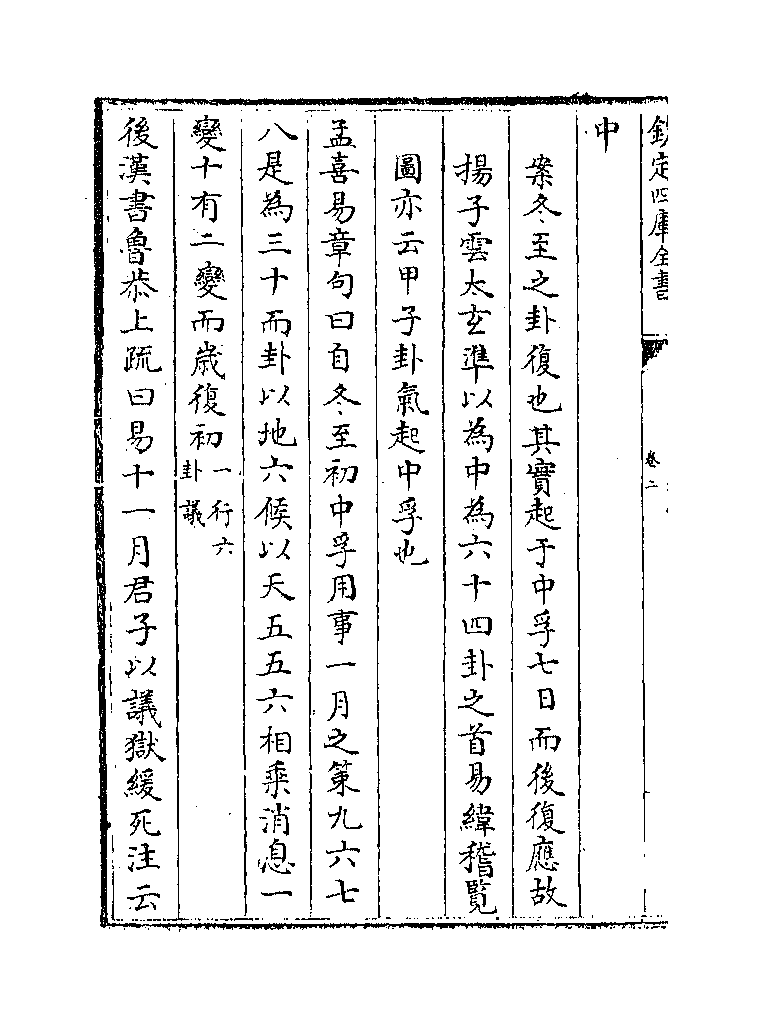 欽定四庫全書
卷二
中
案冬至之卦復也其實起于中孚七日而後復應故
揚子雲太玄準以為中為六十四卦之首易緯稽覽
圖亦云甲子卦氣起中孚也
孟喜易章句曰自冬至初中孚用事一月之策九六七
八是為三十而卦以地六候以天五五六相乘消息一
變十有二變而歳復初一行六卦議
後漢書魯恭上疏曰易十一月君子以議獄緩死注云